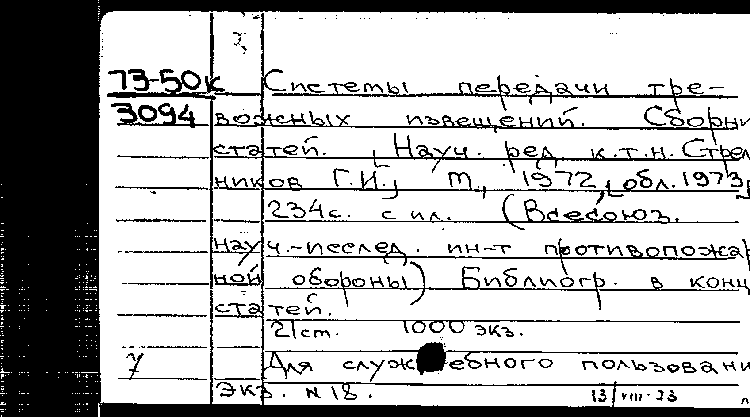 73-50к Системы передачи тре-
3094 вожных извещений. Сборни
статей. [Науч. ред. к.т.н. Стрел
ников Г.И.], М., 1972, [обл. 1973]
234с. с ил. (Всесоюз.
науч.-исслед. ин-т противопожар
ной обороны) Библиогр. в конц
статей.
21 cm. 1000 экз.
7 Для служебного пользовани
Экз. N 18. 13/VIII-73